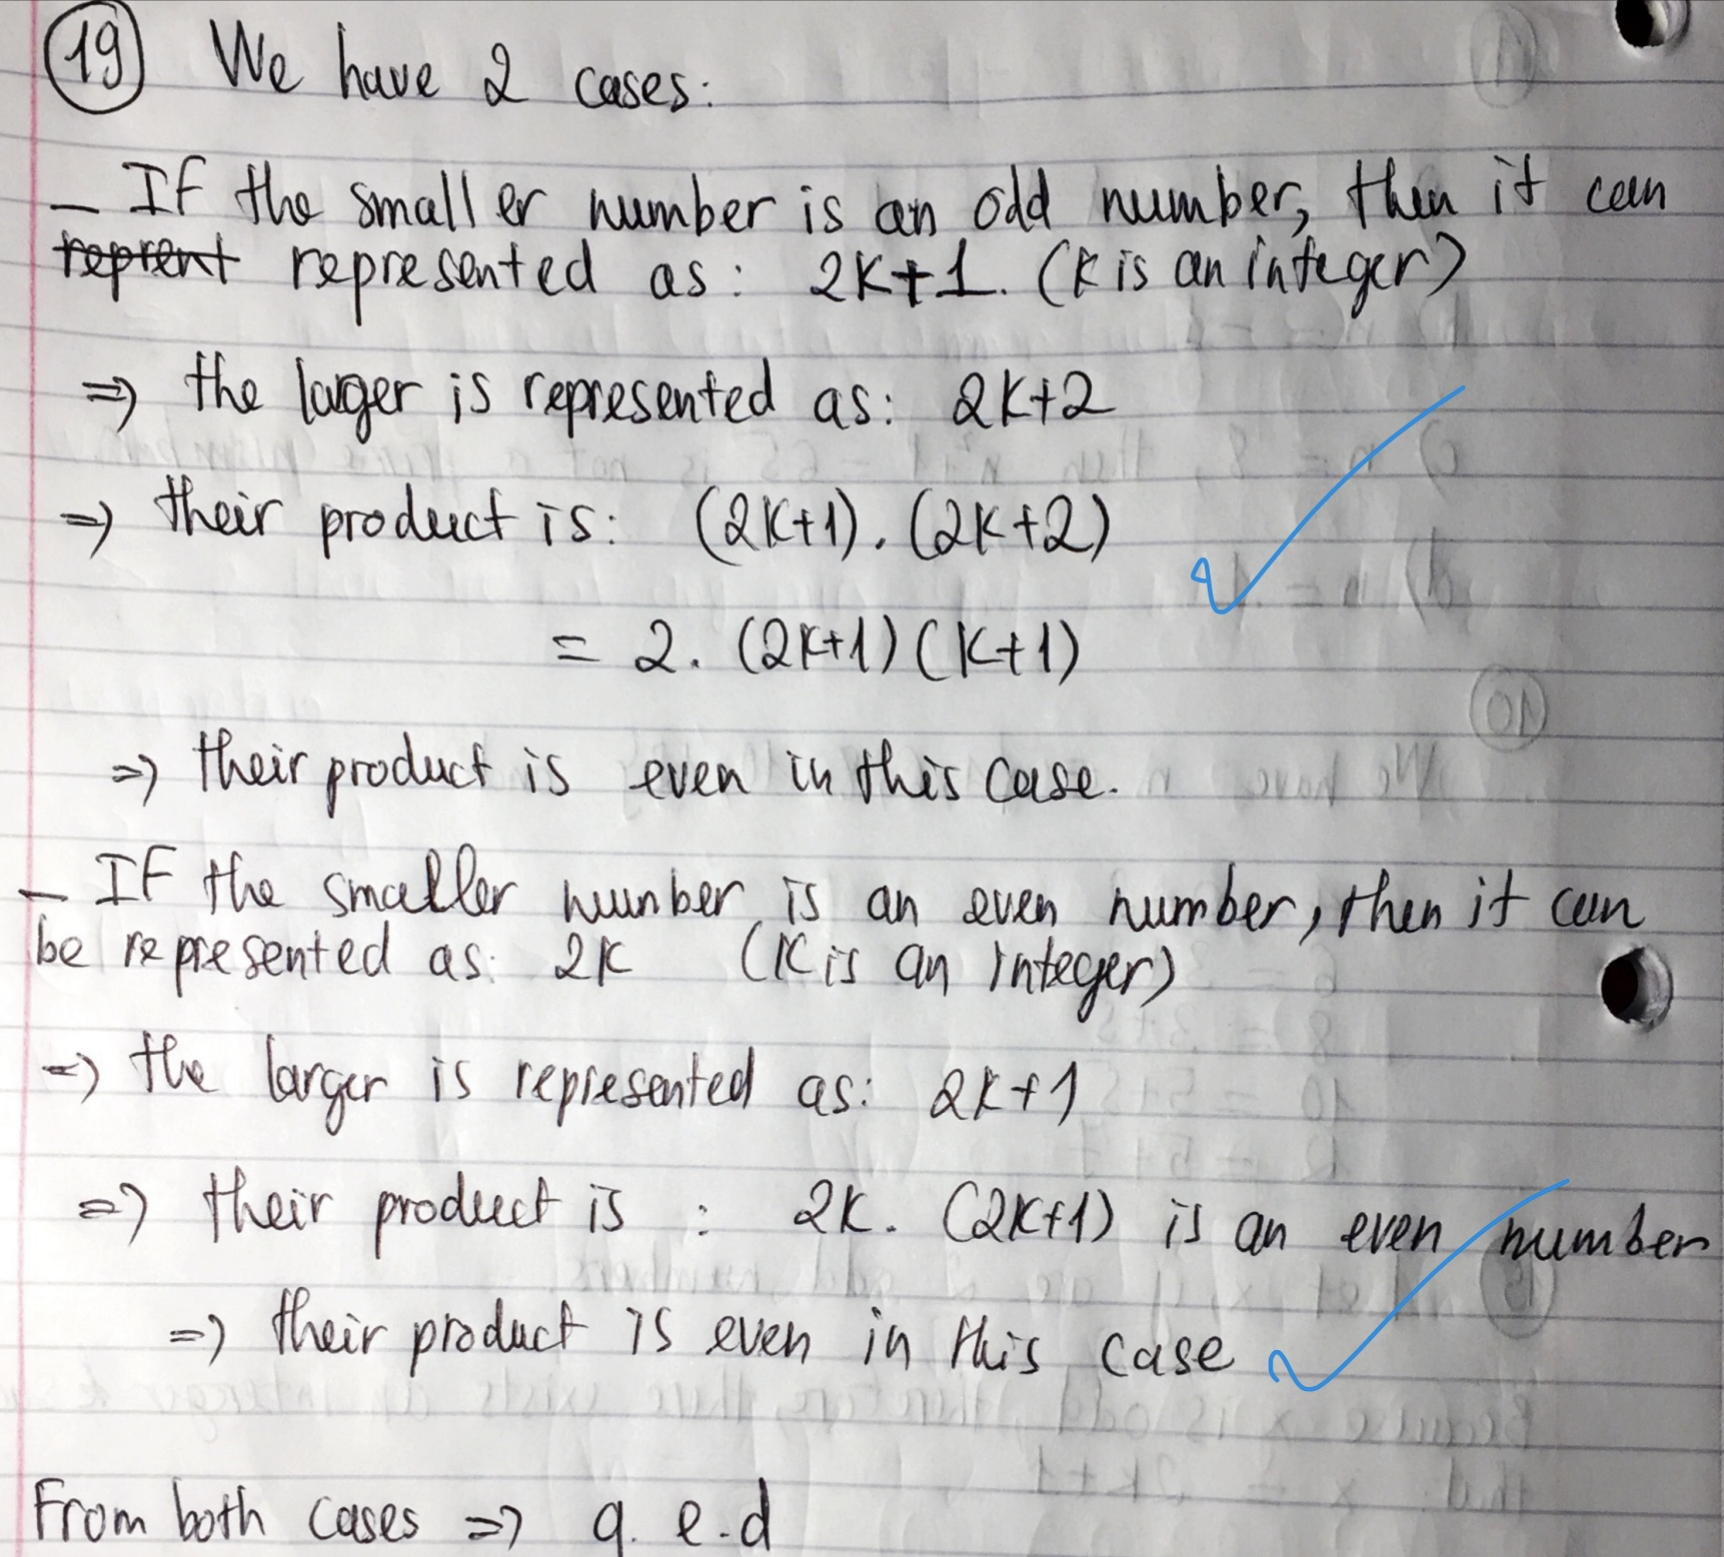 19 We have 2 cases:
– If the smaller number is an odd number, then it can
reprent represented as: 2k+1. (k is an integer)
=> the larger is represented as: 2k+2
=> their product is: (2k+1).(2k+2)
= 2. (2k+1)(k+1)
=> their product is even in this case.
– If the smaller number is an even number, then it can
be represented as: 2k (k is an integer)
=> the larger is represented as: 2k+1
=> their product is : 2k. (2k+1) is an even number
=> their product is even in this case
From both cases => q.e.d